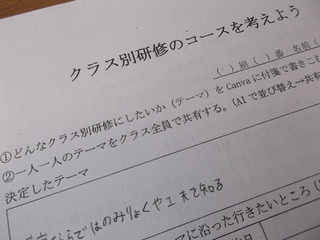 クラス別研修のコースを考えよう
( )組( )番 名前(
①どんなクラス別研修にしたいか(テーマ)をCanvaに付箋で書きこむ
②一人一人のテーマをクラス全員で共有する。(AIで並び替え→共有
決定したテーマ
ならではのみりょくや工夫を知る
アに沿った行きたいところ(